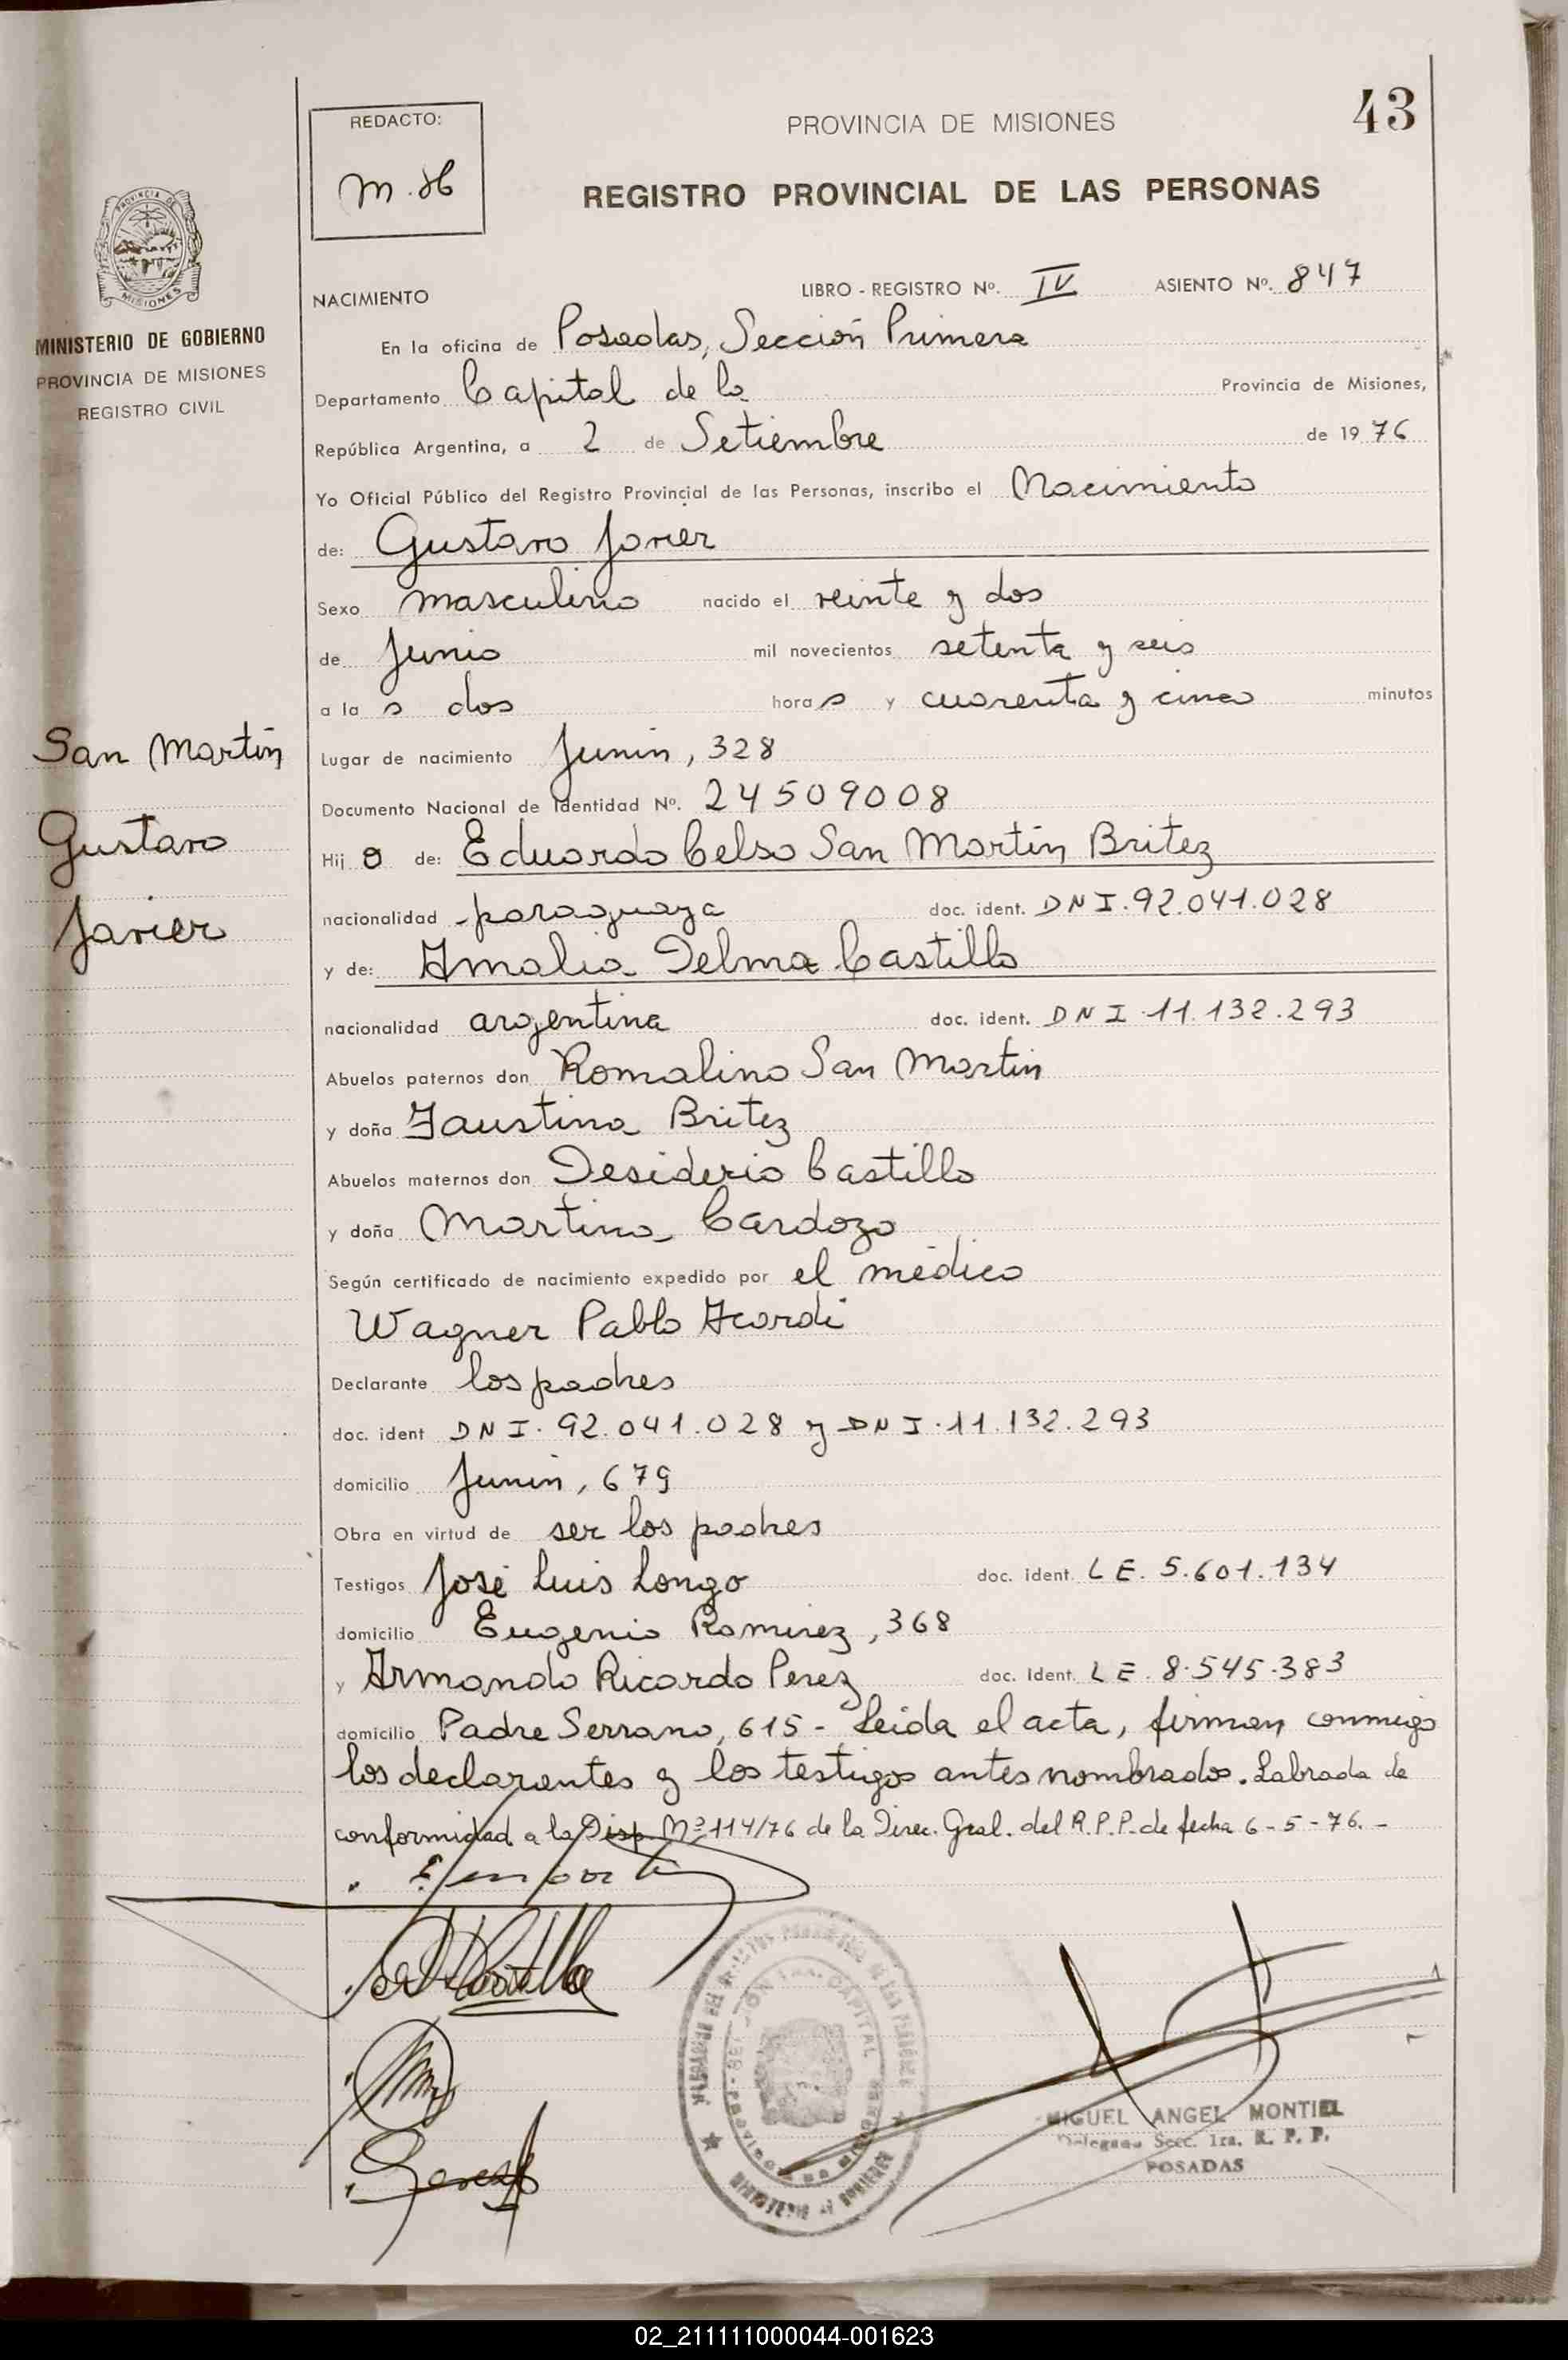 43
REDACTO:
M.H
PROVINCIA DE MISIONES
REGISTRO PROVINCIAL DE LAS PERSONAS
PROVINCIA DE MISIONES
MINISTERIO DE GOBIERNO
PROVINCIA DE MISIONES
REGISTRO CIVIL
NACIMIENTO LIBRO - REGISTRO Nº. IV ASIENTO Nº. 847
En la oficina de Posadas, Sección Primera
Departamento Capital de la Provincia de Misiones,
República Argentina, a 2 de Setiembre de 1976
Yo Oficial Público del Registro Provincial de las Personas, inscribo el Nacimiento
de: Gustavo Javier
Sexo masculino nacido el veinte y dos
de Junio mil novecientos setenta y seis
a la s dos hora s y cuarenta y cinco minutos
San Martín
Gustavo
Javier
Lugar de nacimiento Junín, 328
Documento Nacional de Identidad Nº. 24509008
Hij o de: Eduardo Celso San Martín Britez
nacionalidad paraguaya doc. ident. DNI. 92.041.028
y de: Amalia Delma Castillo
nacionalidad argentina doc. ident. DNI. 11.132.293
Abuelos paternos don Romalino San Martín
y doña Faustina Britez
Abuelos maternos don Desiderio Castillo
y doña Martina Cardozo
Según certificado de nacimiento expedido por el médico
Wagner Pablo Acardi
Declarante los padres
doc. ident DNI. 92.041.028 y DNI. 11.132.293
domicilio Junín, 679
Obra en virtud de ser los padres
Testigos José Luis Longo doc. ident. LE. 5.601.134
domicilio Eugenio Ramírez, 368
y Armando Ricardo Perez doc. ident. LE. 8.545.383
domicilio Padre Serrano, 615 - Leída el acta, firman conmigo
los declarantes y los testigos antes nombrados. Labrada de
conformidad a la Disp. Nº 114/76 de la Direc. Gral. del R.P.P. de fecha 6-5-76. -
MIGUEL ANGEL MONTIEL
Delegado Secc. 1ra. R. P. P.
POSADAS
02_211111000044-001623